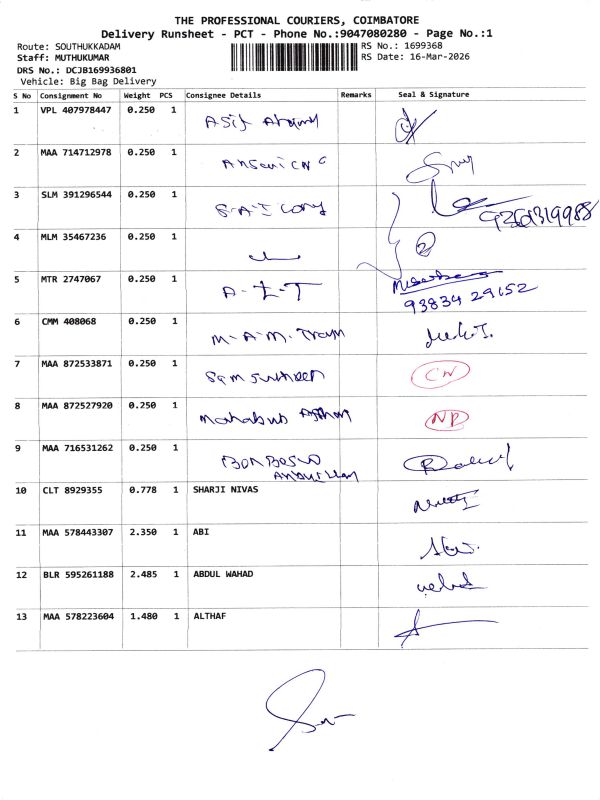 THE PROFESSIONAL COURIERS, COIMBATORE
Delivery Runsheet - PCT - Phone No.:9047080280 - Page No.:1
Route: SOUTHUKKADAM RS No.: 1699368
Staff: MUTHUKUMAR RS Date: 16-Mar-2026
DRS No.: DCJB169936801
Vehicle: Big Bag Delivery
S No Consignment No Weight PCS Consignee Details Remarks Seal & Signature
1 VPL 407978447 0.250 1 Asif
2 MAA 714712978 0.250 1
3 SLM 391296544 0.250 1 S-A-I
4 MLM 35467236 0.250 1 2
5 MTR 2747067 0.250 1 A-I-T
93834 29152
6 CMM 408068 0.250 1 M-A-M-
7 MAA 872533871 0.250 1 Sam CN
8 MAA 872527920 0.250 1 ND
9 MAA 716531262 0.250 1
10 CLT 8929355 0.778 1 SHARJI NIVAS
11 MAA 578443307 2.350 1 ABI
12 BLR 595261188 2.485 1 ABDUL WAHAD
13 MAA 578223604 1.480 1 ALTHAF